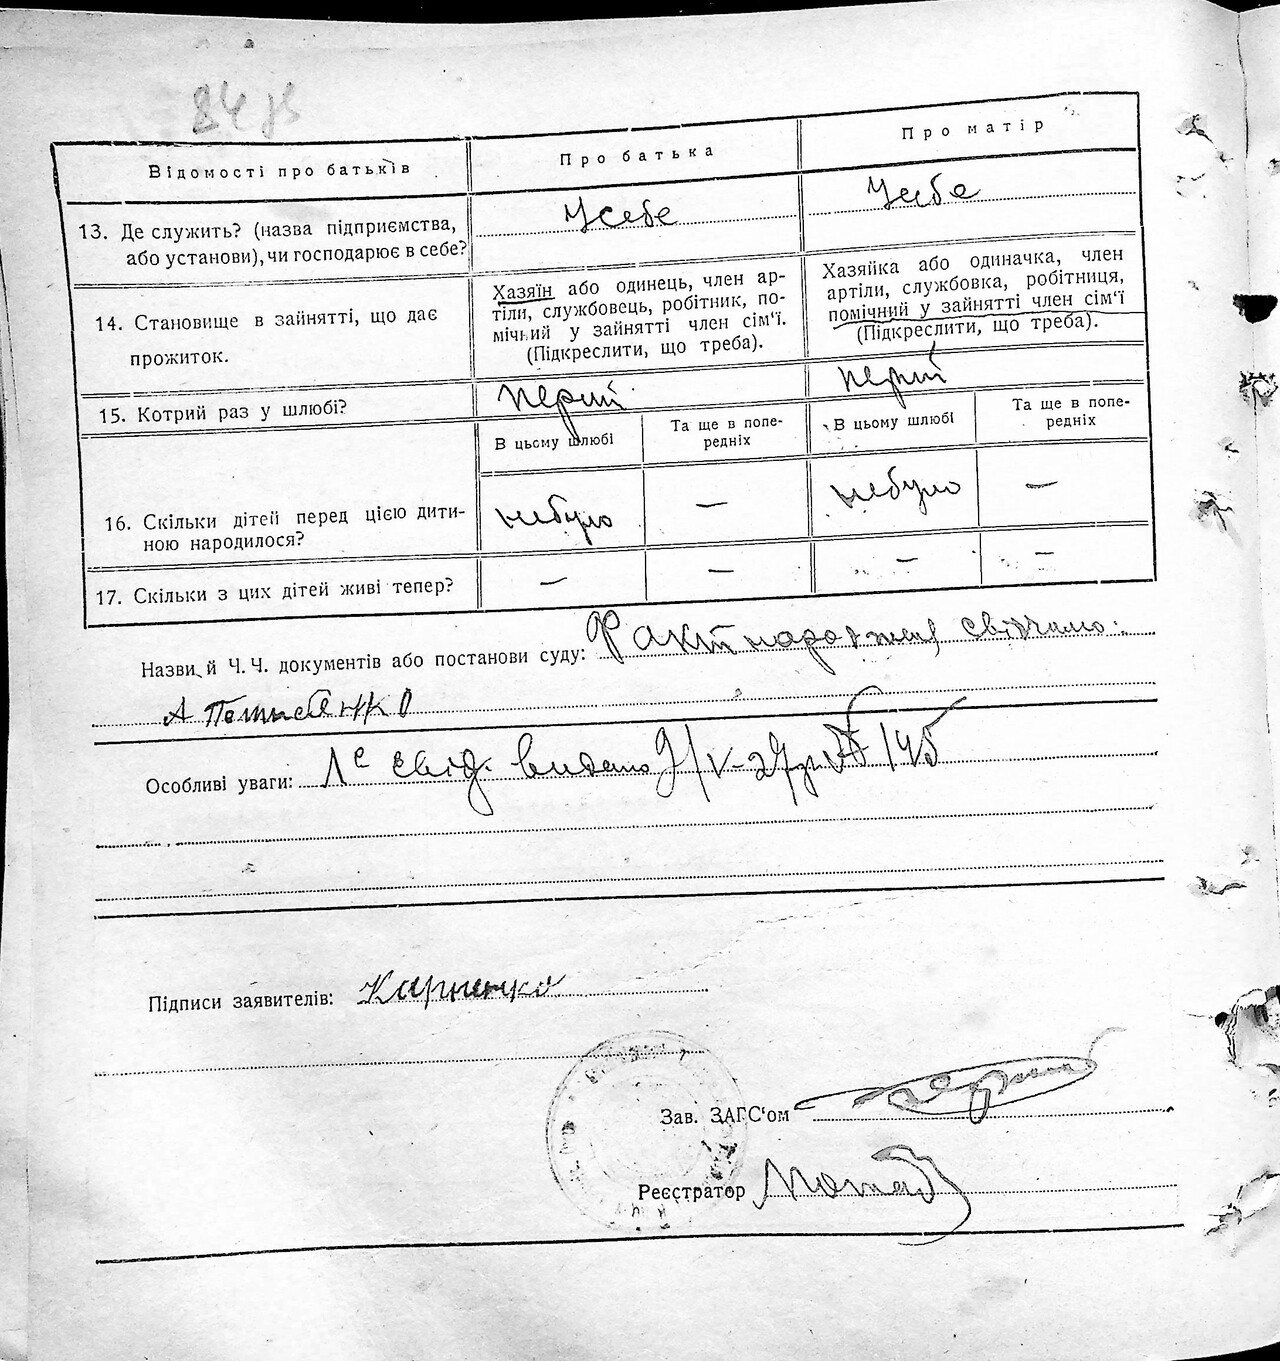 84
Відомості про батьків
Про батька
Про матір
13. Де служить? (назва підприємства,
або установи), чи господарює в себе?
Усебе
Усебе
14. Становище в зайнятті, що дає
прожиток.
Хазяїн або одинець, член ар-
тіли, службовець, робітник, по-
мічний у зайнятті член сім'ї.
(Підкреслити, що треба).
Хазяйка або одиначка, член
артіли, службовка, робітниця,
помічний у зайнятті член сім'ї
(Підкреслити, що треба).
15. Котрий раз у шлюбі?
перший
перший
В цьому шлюбі
Та ще в попе-
редніх
В цьому шлюбі
Та ще в попе-
редніх
16. Скільки дітей перед цією дити-
ною народилося?
небуло
—
небуло
—
17. Скільки з цих дітей живі тепер?
—
—
—
—
Назви й Ч. Ч. документів або постанови суду: Факт народження свідчимо:
А
Особливі уваги: свід. видано 9/V-27р.
Підписи заявителів: Карпенко
Зав. ЗАГС'ом
Реєстратор